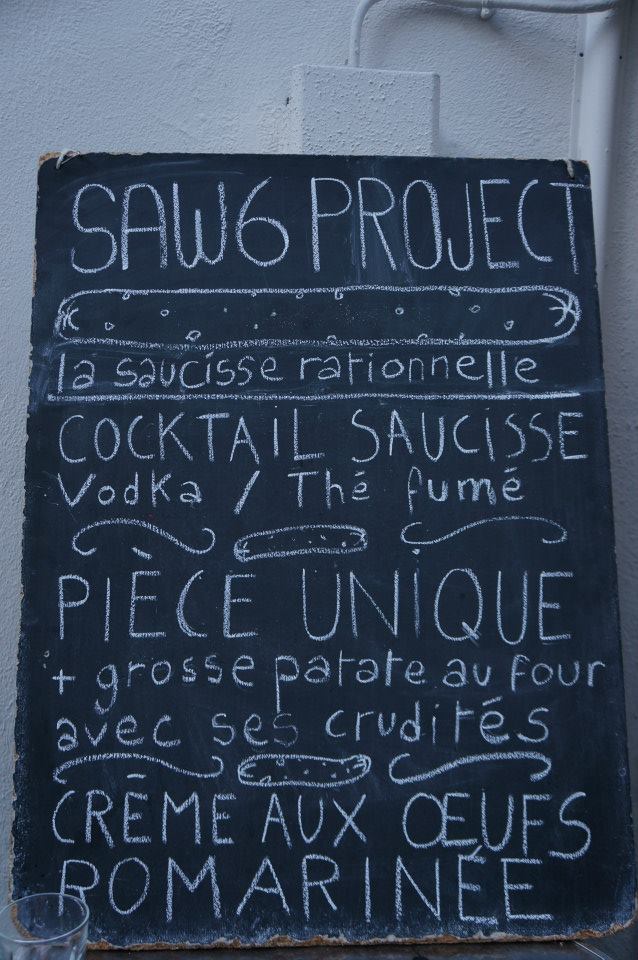 SAW6 PROJECT
la saucisse rationnelle
COCKTAIL SAUCISSE
Vodka / Thé fumé
PIÈCE UNIQUE
+ grosse patate au four
avec ses crudités
CRÈME AUX ŒUFS
ROMARINÉE